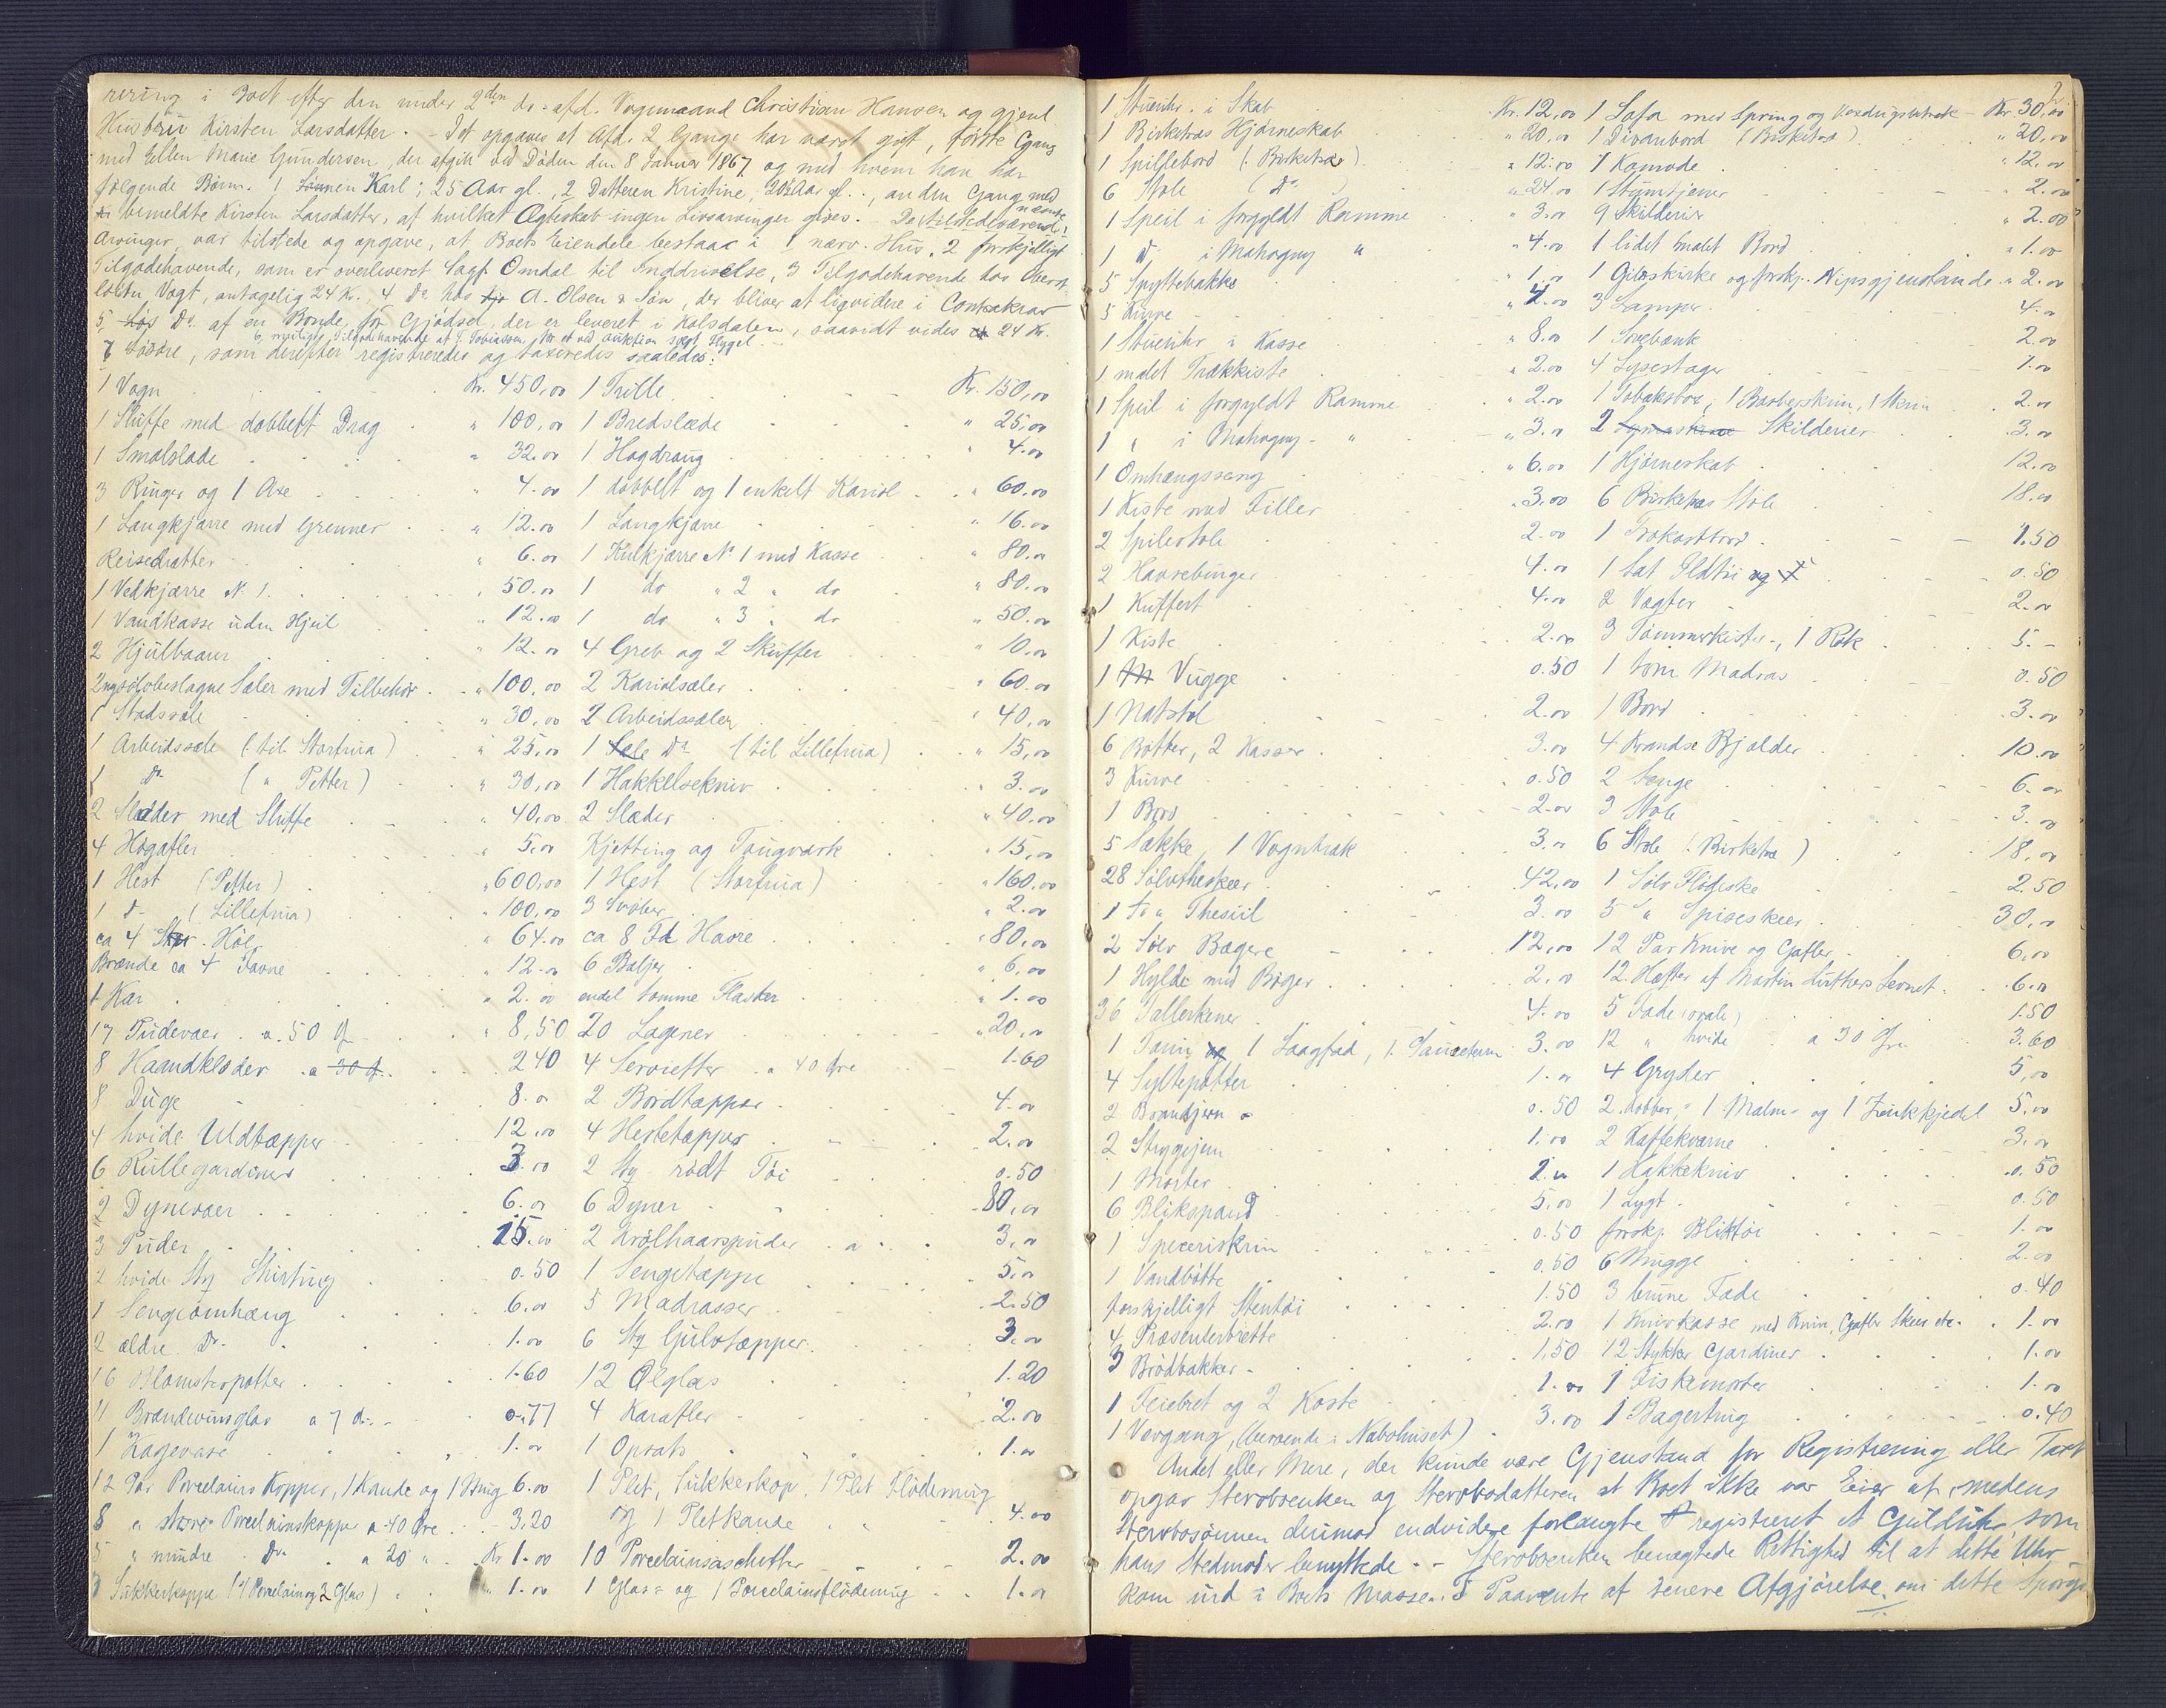 nering i Boet efter den under 2den ds. afd. Vognmand Christian Hansen og gjenl.
Hustru Kirsten Larsdatter. - Det opgaves at Afd. 2 Gange har været gift, første Gang
med Ellen Marie Gundersen, der afgik ved Døden den 8 Januar 1867 og med hvem han har
følgende Børn. 1 Sønnen Karl, 25 Aar gl., 2 Datteren Kristine, 20½ Aar gl., anden Gang med
bemeldte Kirsten Larsdatter, af hvilket Ægteskab ingen Livsarvinger gives. - De tilstedeværende
Arvinger var tilstede og opgave, at Boets Eiendele bestaar i 1 nærv. Hus, 2 forskjelligt
Tilgodehavende, som er overleveret Sagf. Omdal til Inddrivelse, 3 Tilgodehavende hos Oberst
løitn Vogt, antagelig 24 Kr., 4 Do hos A. Olsen & Søn, der bliver at ligvidere i Contrakrav
5, Do af en Bonde for Gjødsel, der er leveret i Kolsdalen, saavidt vides 24 Kr.
6, muligt Tilgodehavende af T. Tobiassen, for et ved Auktion solgt Hygel.
7 Løsøre, som derefter registreredes og taxeredes saaledes:
1 Vogn Kr. 450,00 1 Trille Kr. 150,00
1 Sluffe med dobbelt Drag " 100,00 1 Bredslæde " 25,00
1 Smalslæde " 32.00 1 Hogdraug " 4.00
3 Ringer og 1 Axe " 4.00 1 dobbelt og 1 enkelt Kariol " 60.00
1 Langkjærre med Grenner " 12.00 1 Langkjærre " 16.00
Reisedratter " 6.00 1 Kulkjærre No 1 med Kasse " 80.00
1 Vedkjærre No 1. " 50.00 1 do " 2 " do " 80.00
1 Vandkasse uden Hjul " 12.00 1 do " 3 " do " 50.00
2 Hjulbaarer " 12.00 4 Greb og 2 Skuffer " 10.00
2 nysølvbeslagne Sæler med Tilbehør " 100.00 2 Kariolsæler " 60.00
1 Stadssæle " 30.00 2 Arbeidssæler " 40.00
1 Arbeidssæle (til Storfrua) " 25,00 1 Do (til Lillefrua) " 15,00
1 Do ( " Petter) " 30,00 1 Hakkelsekniv " 3.00
2 Slæder med Sluffe " 40,00 2 Slæder " 40,00
4 Høgafler " 5.00 Kjetting og Taugværk " 15,00
1 Hest (Petter) " 600,00 1 Hest (Storfrua) " 160.00
1 Do (Lillefrua) " 100,00 3 Svøber " 2.00
ca 4 Høe " 64.00 ca 8 Td Havre " 80,00
Brænde ca 4 Favne " 12.00 6 Baljer " 6,00
1 Kar " 2.00 endel tomme Flasker " 1.00
17 Pudevaer a 50 Ø " 8,50 20 Lagener " 20,00
8 Haandklæder a 30 Ø 2.40 4 Servietter a 40 Øre 1.60
8 Duge 8.00 2 Bordtæpper 4.00
4 hvide Uldtæpper 12.00 4 Hestetæpper 2.00
6 Rullegardiner 3.00 2 Sty rødt Tøi 0.50
2 Dynevaer 6.00 6 Dyner 80,00
3 Puder 15.00 2 Krølhaarspuder 3,00
2 hvide Sty Shirting 0.50 1 Sengetæppe 5,00
1 Sengeomhæng 6.00 5 Madrasser 2.50
2 ældre Do 1.00 6 Sty Gulvtæpper 3.00
16 Blomsterpotter 1.60 12 Ølglas 1.20
11 Brændevinsglas a 7 Ø 0.77 4 Karafler 2.00
1 Kagevase 1.00 1 Opsats 1.00
12 Par Porcelains Kopper, 1 Kande og 1 Mug 6.00 1 Plet, Sukkerkop, 1 Plet Flødemug
8 " større Porcelainskopper a 40 Øre 3.20 og 1 Pletkande 4.00
5 " mindre Do a 20 " Kr 1.00 10 Porcelainsasietter 2.00
3 Sukkerkopper (1 Porcelain og 2 Glas) " 1.00 1 Glas- og 1 Porcelainsflødemug 1.00
2
1 Stueuhr i Skab Kr. 12.00 1 Sofa med Spring og Voxdugsbetræk Kr. 30,00
1 Birketræs Hjørneskab " 20,00 1 Divanbord (Birketræ) " 20,00
1 Spillebord (Birketræ) " 12.00 1 Komode " 12.00
6 Stole (Do) " 24.00 1 Stumtjener " 2.00
1 Speil i forgyldt Ramme " 3.00 9 Skilderier " 2.00
1 Do i Mahogny " " 4.00 1 lidet malet Bord " 1.00
5 Spyttebakke " 1.00 1 Gibskirke og forskj. Nipsgjenstande " 2.00
5 Kurve " 2.00 3 Lamper 4.00
1 Stueuhr i Kasse " 8.00 1 Sovebænk 2.00
1 malet Trækkiste " 2.00 4 Lysestager 1.00
1 Speil i forgyldt Ramme " 2.00 1 Tobaksdose, 1 Barberskrin, 1 Skrin 2.00
1 " i Mahogny " " 3.00 2 Skilderier 3.00
1 Omhængsseng " 6.00 1 Hjørneskab 12.00
1 Kiste med Filler " 3.00 6 Birketræs Stole 18.00
2 Spilestole 2.00 1 Frokostbord 1.50
2 Havrebinger 4.00 1 Sæt Ildtøi 0.50
1 Kuffert 4.00 2 Vægter 2.00
1 Kiste 2.00 3 Tømmerkister, 1 Rok 5.-
1 Vugge 0.50 1 tom Madras 0.50
1 Natstol 2.00 1 Bord 3.00
6 Bøtter, 2 Kasser 3.00 4 Krandse Bjælder 10.00
3 Kurve 0.50 2 Senge 6.00
1 Bord 2.00 3 Stole 3.00
5 Sække, 1 Vogntræk 3.00 6 Stole (Birketræ) 18,00
28 Sølvtheskeer 42,00 1 Sølv Flødeske 2.50
1 Thesiil 3.00 5 " Spiseskeer 30,00
2 Sølv Bægere 12,00 12 Par Knive og Gafler 6,00
1 Hylde med Bøger 2.00 12 Hefter af Martin Luthers Levnet 6.00
36 Tallerkener 4.00 5 Fade (ovale) 1.50
1 Terrin 1 Laagfad, 1 3.00 12 " hvide a 30 Øre 3.60
4 Syltepotter 1.00 4 Gryder 5,00
2 Brændjern 0.50 2 Kobber, 1 Malm- og 1 Zinkkjedel 5.00
2 Strygejern 1.00 2 Kaffekværne 3.00
1 Morter 2.00 1 Hakkekniv 0.50
6 Blikspand 5.00 1 Lygt 0.50
1 Speceriskrin 0.50 forskj. Bliktøi 1.00
1 Vandbøtte 0.50 6 Mugge 2.00
forskjelligt Stentøi 1.50 3 brune Fade 0.40
4 Præsenterbrette 2.00 1 Knivkasse med Knive, Gafler Skeer etc. 1.00
3 Brødbakker 1,50 12 Stykker Gardiner 1.00
1 Feiebret og 2 Koste 1.00 1 Fiskemorter 1.00
1 Vevgang, (beroende i Nabohuset) 3.00 1 Bagertrug 0.40
Andet eller Mere, der kunde være Gjenstand for Registrering eller Taxt
opgav Stervboenken og Stervbodatteren at Boet ikke var Eier af, medens
Stervbosønnen derimod endvidere forlangte registreret et Gulduhr som
hans Stedmoder benyttede. - Stervboenken benægtede Rettighed til at dette Uhr
kom ind i Boets Masse. I Paavente af senere Afgjørelse om dette Spørgs